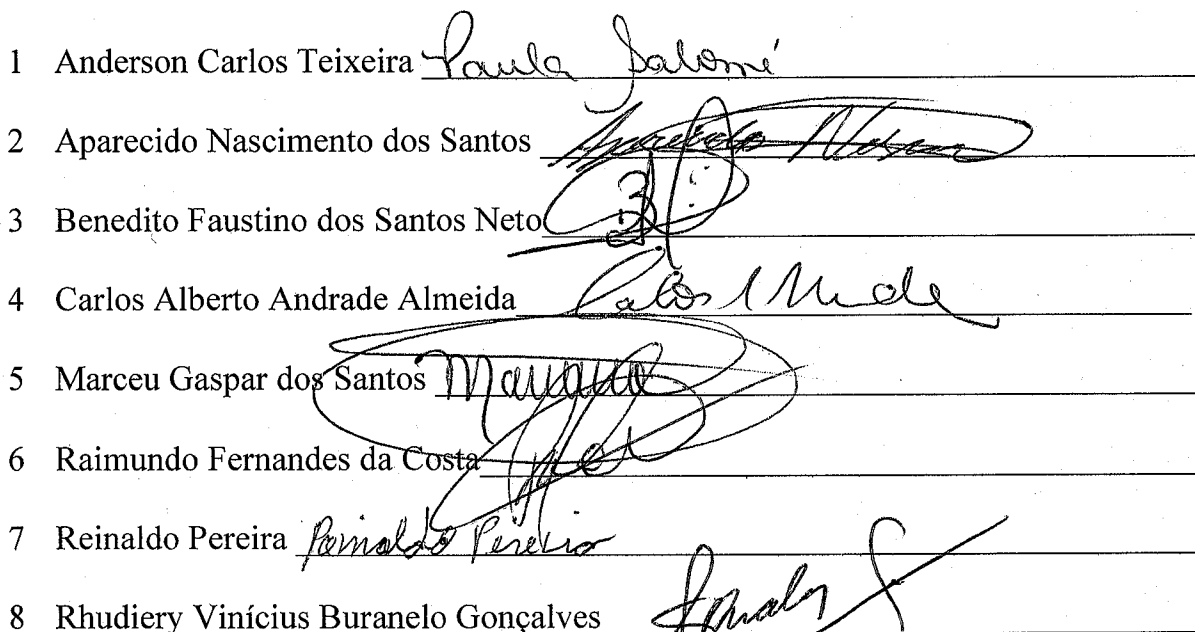 1 Anderson Carlos Teixeira Paula Salomé
2 Aparecido Nascimento dos Santos
3 Benedito Faustino dos Santos Neto
4 Carlos Alberto Andrade Almeida
5 Marceu Gaspar dos Santos
6 Raimundo Fernandes da Costa
7 Reinaldo Pereira Reinaldo Pereira
8 Rhudiery Vinícius Buranelo Gonçalves